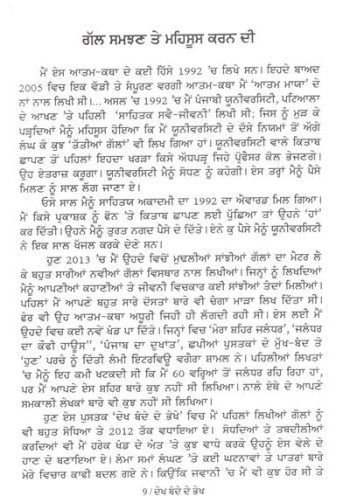 ਗੱਲ ਸਮਝਣ ਤੇ ਮਹਿਸੂਸ ਕਰਨ ਦੀ
ਮੈਂ ਏਸ ਆਤਮ-ਕਥਾ ਦੇ ਕਈ ਹਿੱਸੇ 1992 'ਚ ਲਿਖੇ ਸਨ। ਇਹਦੇ ਬਾਅਦ
2005 ਵਿਚ ਇਕ ਵੱਡੀ ਤੇ ਸੰਪੂਰਣ ਵਰਗੀ ਆਤਮ-ਕਥਾ ਮੈਂ 'ਆਤਮ ਮਾਯਾ' ਦੇ
ਨਾਂ ਨਾਲ ਲਿਖੀ ਸੀ।... ਅਸਲ 'ਚ 1992 'ਚ ਮੈਂ ਪੰਜਾਬੀ ਯੂਨੀਵਰਸਿਟੀ, ਪਟਿਆਲਾ
ਦੇ ਆਖਣ 'ਤੇ ਪਹਿਲੀ 'ਸਾਹਿਤਕ ਸਵੈ-ਜੀਵਨੀ' ਲਿਖੀ ਸੀ; ਜਿਸ ਨੂੰ ਮੁੜ ਕੇ
ਪੜ੍ਹਦਿਆਂ ਮੈਨੂੰ ਮਹਿਸੂਸ ਹੋਇਆ ਕਿ ਮੈਂ ਯੂਨੀਵਰਸਿਟੀ ਦੇ ਦੱਸੇ ਨਿਯਮਾਂ ਤੋਂ ਅੱਗੇ
ਲੰਘ ਕੇ ਕੁਝ 'ਤੱਤੀਆਂ ਗੱਲਾਂ' ਵੀ ਲਿਖ ਗਿਆ ਹਾਂ। ਯੂਨੀਵਰਸਿਟੀ ਵਾਲੇ ਕਿਤਾਬ
ਛਾਪਣ ਤੋਂ ਪਹਿਲਾਂ ਇਹਦਾ ਖਰੜਾ ਕਿਸੇ ਅੱਧਪੜ੍ਹ ਜਿਹੇ ਪ੍ਰੋਫੈਸਰ ਕੋਲ ਭੇਜਣਗੇ।
ਉਹ ਏਤਰਾਜ਼ ਕਰੂਗਾ। ਯੂਨੀਵਰਸਿਟੀ ਮੈਨੂੰ ਸੋਧਣ ਨੂੰ ਕਹੇਗੀ। ਇਸ ਤਰ੍ਹਾਂ ਮੈਨੂੰ ਪੈਸੇ
ਮਿਲਣ ਨੂੰ ਸਾਲ ਲੱਗ ਜਾਣਾ ਏ।
ਓਸੇ ਸਾਲ ਮੈਨੂੰ ਸਾਹਿਤਯ ਅਕਾਦਮੀ ਦਾ 1992 ਦਾ ਐਵਾਰਡ ਮਿਲ ਗਿਆ।
ਮੈਂ ਕਿਸੇ ਪ੍ਰਕਾਸ਼ਕ ਨੂੰ ਫੋਨ 'ਤੇ ਕਿਤਾਬ ਛਾਪਣ ਲਈ ਪੁੱਛਿਆ ਤਾਂ ਉਹਨੇ 'ਹਾਂ'
ਕਰ ਦਿੱਤੀ। ਉਹਨੇ ਮੈਨੂੰ ਤੁਰਤ ਨਗਦ ਪੈਸੇ ਦੇ ਦਿੱਤੇ। ਏਨੇ ਕੁ ਪੈਸੇ ਮੈਨੂੰ ਯੂਨੀਵਰਸਿਟੀ
ਨੇ ਇਕ ਸਾਲ ਖੱਜਲ ਕਰਕੇ ਦੇਣੇ ਸਨ।
ਹੁਣ 2013 'ਚ ਮੈਂ ਉਹਦੇ ਵਿਚੋਂ ਮੁਢਲੀਆਂ ਸਾਂਝੀਆਂ ਗੱਲਾਂ ਦਾ ਮੈਟਰ ਲੈ
ਕੇ ਬਹੁਤ ਸਾਰੀਆਂ ਨਵੀਆਂ ਗੱਲਾਂ ਵਿਸਥਾਰ ਨਾਲ ਲਿਖੀਆਂ। ਜਿਨ੍ਹਾਂ ਨੂੰ ਲਿਖਦਿਆਂ
ਮੈਨੂੰ ਆਪਣੀਆਂ ਕਹਾਣੀਆਂ ਤੇ ਜੀਵਨੀ ਵਿਚਕਾਰ ਕਈ ਸਾਂਝੀਆਂ ਤੰਦਾਂ ਮਿਲੀਆਂ।
ਪਹਿਲਾਂ ਮੈਂ ਆਪਣੇ ਬਹੁਤ ਸਾਰੇ ਦੋਸਤਾਂ ਬਾਰੇ ਵੀ ਚੰਗਾ ਮਾੜਾ ਲਿਖ ਦਿੱਤਾ ਸੀ।
ਫੇਰ ਵੀ ਉਹ ਆਤਮ-ਕਥਾ ਅਧੂਰੀ ਜਿਹੀ ਹੀ ਲੱਗਦੀ ਰਹੀ ਸੀ। ਏਸ ਲਈ ਮੈਂ
ਉਹਦੇ ਵਿਚ ਕਈ ਨਵੇਂ ਖੰਡ ਪਾ ਦਿੱਤੇ। ਜਿਨ੍ਹਾਂ ਵਿਚ 'ਮੇਰਾ ਸ਼ਹਿਰ ਜਲੰਧਰ', 'ਜਲੰਧਰ
ਦਾ ਕੌਫੀ ਹਾਊਸ'', 'ਪੰਜਾਬ ਦਾ ਦੁਖਾਂਤ', ਛਪੀਆਂ ਪੁਸਤਕਾਂ ਦੇ ਮੁੱਖ-ਬੰਦ ਤੇ
'ਹੁਣ' ਪਰਚੇ ਨੂੰ ਦਿੱਤੀ ਲੰਮੀ ਇੰਟਰਵਿਊ ਵਗੈਰਾ ਸ਼ਾਮਲ ਨੇ। ਪਹਿਲੀਆਂ ਲਿਖਤਾਂ
'ਚ ਮੈਨੂੰ ਇਹ ਕਮੀ ਖਟਕਦੀ ਸੀ ਕਿ ਮੈਂ 60 ਵਰ੍ਹਿਆਂ ਤੋਂ ਜਲੰਧਰ ਰਹਿ ਰਿਹਾ ਹਾਂ,
ਪਰ ਮੈਂ ਆਪਣੇ ਏਸ ਸ਼ਹਿਰ ਬਾਰੇ ਕੁਝ ਨਹੀਂ ਸੀ ਲਿਖਿਆ। ਨਾਲੇ ਏਥੇ ਦੇ ਆਪਣੇ
ਸਮਕਾਲੀ ਲੇਖਕਾਂ ਬਾਰੇ ਵੀ ਕੁਝ ਨਹੀਂ ਸੀ ਲਿਖਿਆ।
ਹੁਣ ਏਸ ਪੁਸਤਕ 'ਦੇਖ ਬੰਦੇ ਦੇ ਭੇਖ' ਵਿਚ ਮੈਂ ਪਹਿਲਾਂ ਲਿਖੀਆਂ ਗੱਲਾਂ ਨੂੰ
ਵੀ ਬਹੁਤ ਸੋਧਿਆ ਤੇ 2012 ਤੱਕ ਵਧਾਇਆ ਏ। ਸੁਧਾਈਆਂ ਤੇ ਤਬਦੀਲੀਆਂ
ਕਰਦਿਆਂ ਵੀ ਮੈਂ ਹਰੇਕ ਖੰਡ ਦੇ ਅੰਤ 'ਤੇ ਕੁਝ ਵਾਧੇ ਕਰਕੇ ਉਹਨੂੰ ਇਸ ਵੇਲੇ ਦੇ
ਹਾਣ ਦੇ ਬਣਾਇਆ ਏ। ਲੰਮਾ ਸਮਾਂ ਲੰਘਣ 'ਤੇ ਕਈ ਘਟਨਾਵਾਂ ਤੇ ਪਾਤਰਾਂ ਬਾਰੇ
ਮੇਰੇ ਵਿਚਾਰ ਕਾਫੀ ਬਦਲ ਗਏ ਨੇ। ਕਿਉਂਕਿ ਜਵਾਨੀ 'ਚ ਮੈਂ ਵੀ ਕੁਝ ਹੋਰ ਸੀ ਤੇ
9/ਦੇਖ ਬੰਦੇ ਦੇ ਭੇਖ